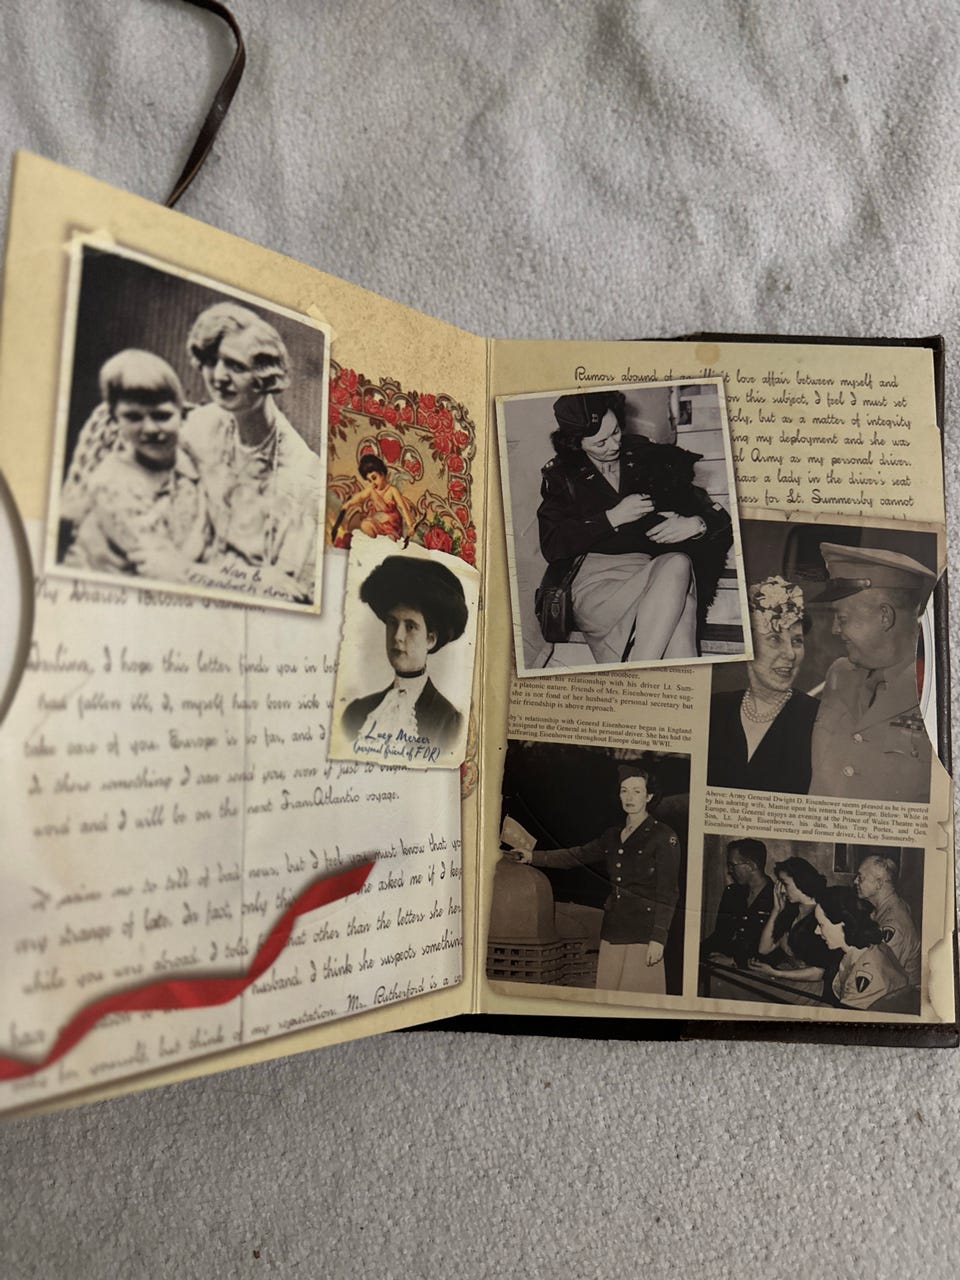 Nan &
Elizabeth Ann
Lucy Mercer
(personal friend of FDR)
My Dearest Beloved
Darling, I hope this letter finds you in
had fallen ill, I, myself have been sick
take care of you. Europe is so far, and I
Is there something I can send you, even if just to
word and I will be on the next TransAtlantic voyage.
me to tell of bad news, but I feel you must know that
very strange of late. In fact, only this she asked me if I
while you were abroad. I told that other than the letters she
husband. I think she suspects something
Mr. Rutherford is a
for yourself, but think of my reputation.
Rumors abound of an illicit love affair between myself and
on this subject, I feel I must set
but as a matter of integrity
ing my deployment and she was
al Army as my personal driver.
have a lady in the drivers seat
ness for Lt. Summersby cannot
and rootbeer.
that his relationship with his driver Lt. Sum-
a platonic nature. Friends of Mrs. Eisenhower have sug-
she is not fond of her husband's personal secretary but
heir friendship is above reproach.
by's relationship with General Eisenhower began in England
assigned to the General as his personal driver. She has had the
hauffeuring Eisenhower throughout Europe during WWII.
Above: Army General Dwight D. Eisenhower seems pleased as he is greeted
by his adoring wife, Mamie upon his return from Europe. Below: While in
Europe, the General enjoys an evening at the Prince of Wales Theatre with
Son, Lt. John Eisenhower, his date, Miss Tony Porter, and Gen.
Eisenhower's personal secretary and former driver, Lt. Kay Summersby.